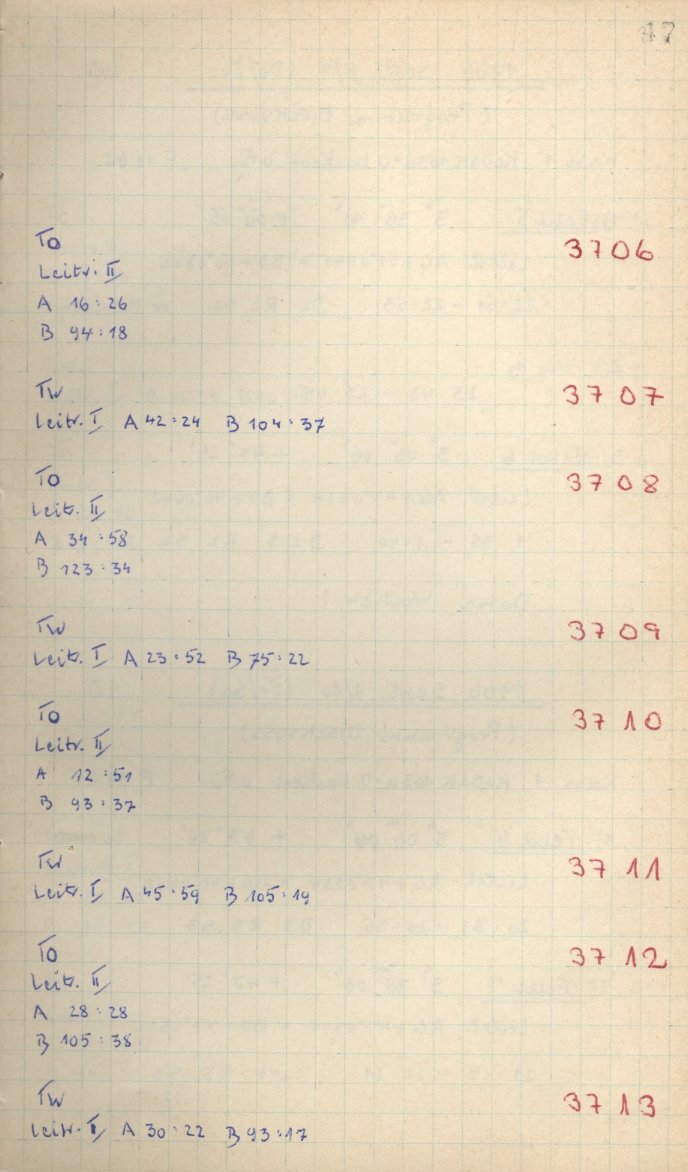 47
TO 3706
Leitr. II
A 16:26
B 94:18
TW 3707
Leitr. I A 42:24 B 104:37
TO 3708
Leitr. II
A 34:58
B 123:34
TW 3709
Leitr. I A 23:52 B 75:22
TO 3710
Leitr. II
A 12:51
B 93:37
TW 3711
Leitr. I A 45:59 B 105:19
TO 3712
Leitr. II
A 28:28
B 105:38
TW 3713
Leitr. I A 30:22 B 93:17